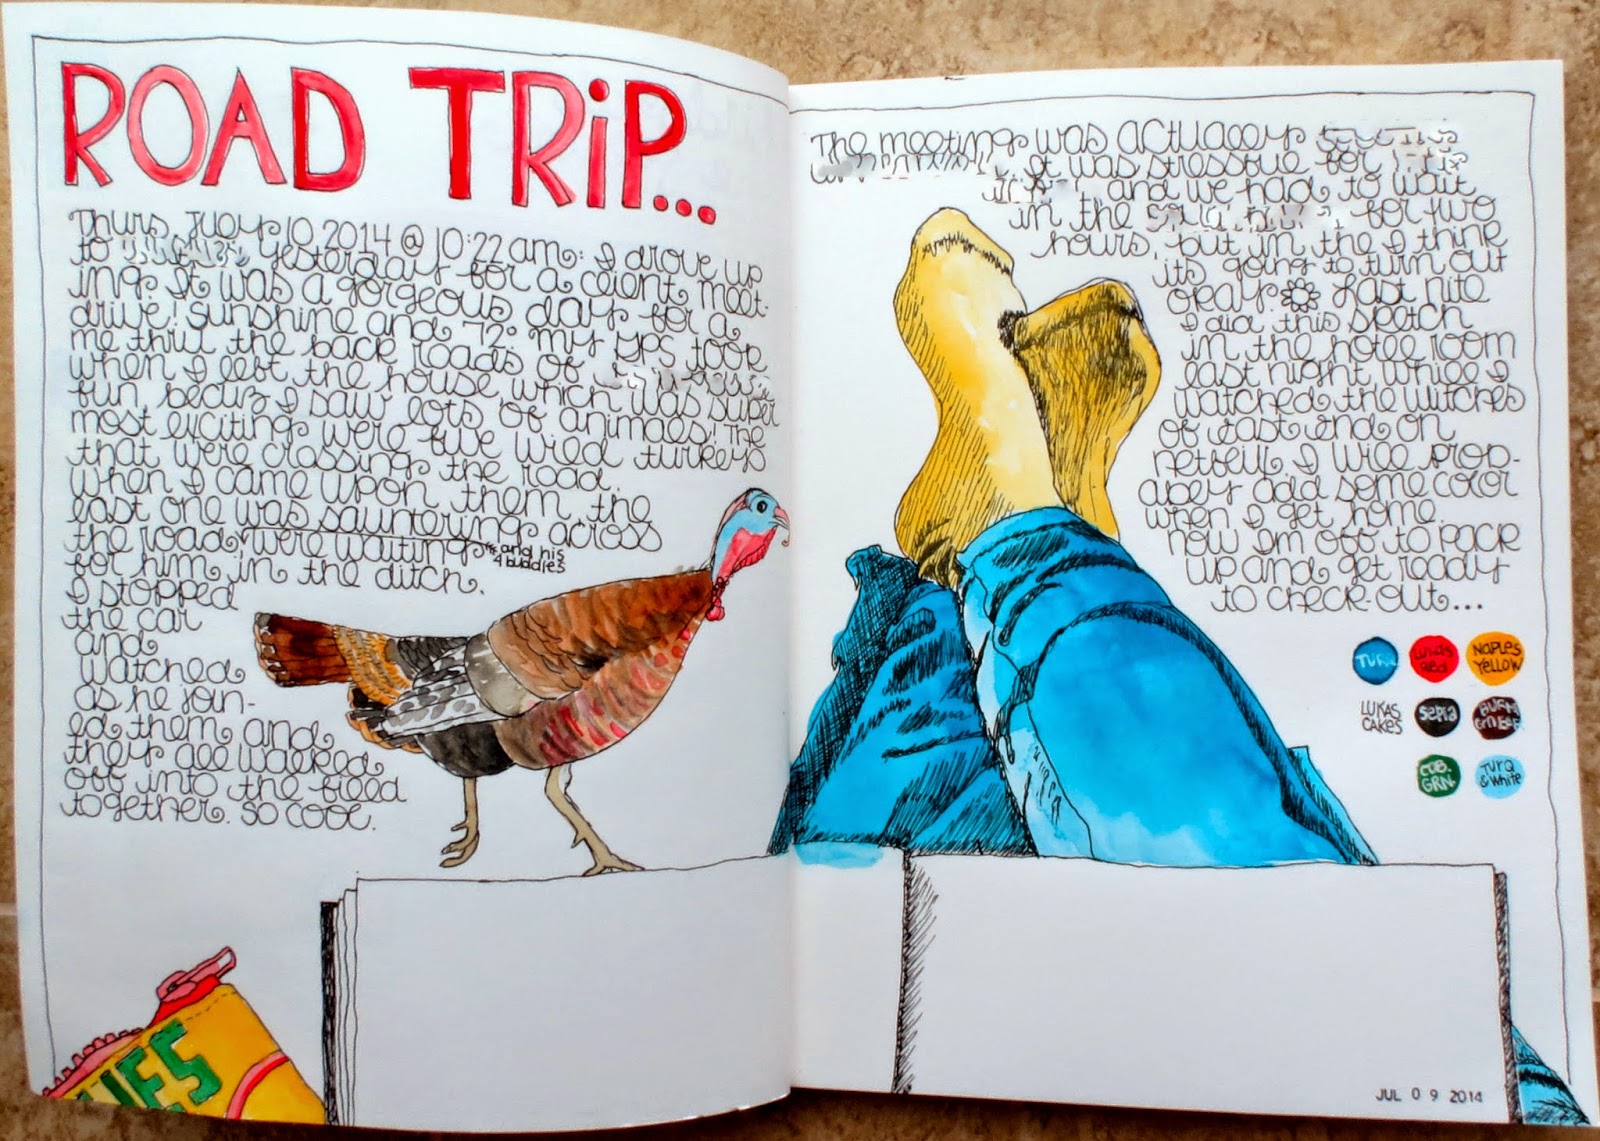 ROAD TRiP...
Thurs July 10 2014 @ 10:22 am: I drove up
to yesterday for a client meet-
ing. It was a gorgeous day for a
drive! Sunshine and 72° my GPS took
me thru the back roads of
when I left the house which was super
fun becuz I saw lots of animals! The
most exciting were five wild turkeys
that were crossing the road.
When I came upon them the
last one was sauntering across
the road were waiting and his
4 buddies
for him in the ditch.
I stopped
the car
and
watched
as he join-
ed them and
they all walked
off into the field
together. So cool.
The meeting was actually
It was stressful for
and we had to wait
in the for two
hours, but in the I think
its going to turn out
okay Last nite
I did this sketch
in the hotel room
last night while I
watched the Witches
of East End on
Netflix. I will prob-
ably add some color
when I get home.
Now Im off to pack
up and get ready
to check-out...
Turq
Lukas
Red
NAPLES
YELLOW
LUKAS
CAKES
Sepia
Burnt
Umber
COB.
GRN.
TurQ
& White
JUL 09 2014